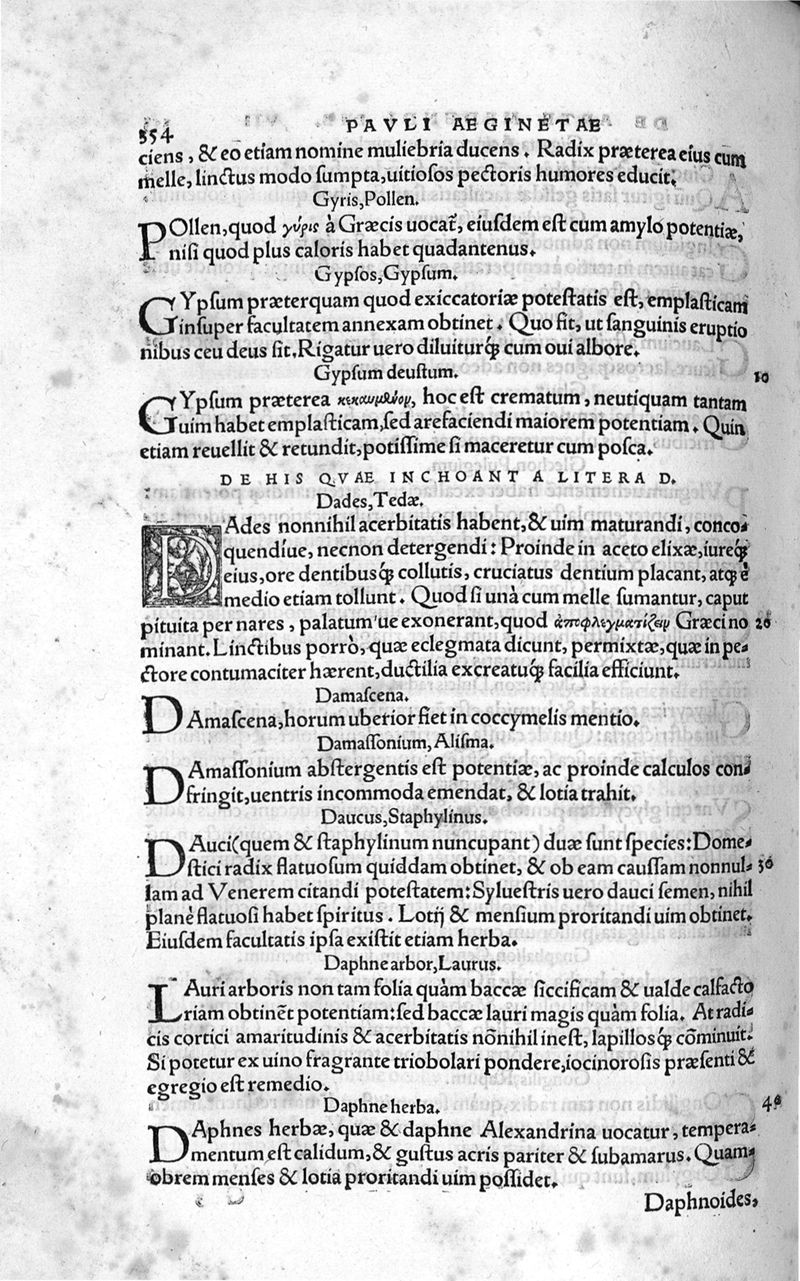 354 PAVLI AEGINETAE
ciens, & eo etiam nomine muliebria ducens. Radix præterea eius cum
melle, linctus modo sumpta, uitiosos pectoris humores educit.
Gyris, Pollen.
POllen, quod γύρις à Græcis uocat̃, eiusdem est cum amylo potentiæ,
nisi quod plus caloris habet quadantenus.
Gypsos, Gypsum.
GYpsum præterquam quod exiccatoriæ potestatis est, emplasticam
insuper facultatem annexam obtinet. Quo fit, ut sanguinis eruptio
nibus ceu deus sit. Rigatur uero diluiturq́; cum oui albore.
Gypsum deustum. 10
GYpsum præterea κεκαυμένον, hoc est crematum, neutiquam tantam
uim habet emplasticam, sed arefaciendi maiorem potentiam. Quin
etiam reuellit & retundit, potissime si maceretur cum posca.
DE HIS QVAE INCHOANT A LITERA D.
Dades, Tedæ.
DAdes nonnihil acerbitatis habent, & uim maturandi, conco-
quendíue, necnon detergendi: Proinde in aceto elixæ, iureq́;
eius, ore dentibusq́; collutis, cruciatus dentium placant, atq; è
medio etiam tollunt. Quod si unà cum melle sumantur, caput
pituita per nares, palatum'ue exonerant, quod ἀποφλεγματίζειν Græci no 20
minant. Linctibus porrò, quæ eclegmata dicunt, permixtæ, quæ in pe-
ctore contumaciter hærent, ductilia excreatuq́; facilia efficiunt.
Damascena.
DAmascena, horum uberior fiet in coccymelis mentio.
Damassonium, Alisma.
DAmassonium abstergentis est potentiæ, ac proinde calculos con-
fringit, uentris incommoda emendat, & lotia trahit.
Daucus, Staphylinus.
DAuci (quem & staphylinum nuncupant) duæ sunt species: Dome-
stici radix flatuosum quiddam obtinet, & ob eam caussam nonnul- 30
lam ad Venerem citandi potestatem: Syluestris uero dauci semen, nihil
planè flatuosi habet spiritus. Lotij & mensium proritandi uim obtinet.
Eiusdem facultatis ipsa existit etiam herba.
Daphne arbor, Laurus.
LAuri arboris non tam folia quàm baccæ siccificam & ualde calfacto
riam obtinẽt potentiam: sed baccæ lauri magis quàm folia. At radi-
cis cortici amaritudinis & acerbitatis nõnihil inest, lapillosq́; cõminuit.
Si potetur ex uino fragrante triobolari pondere, iocinorosis præsenti &
egregio est remedio.
Daphne herba. 40
DAphnes herbæ, quæ & daphne Alexandrina uocatur, tempera-
mentum est calidum, & gustus acris pariter & subamarus. Quam-
obrem menses & lotia proritandi uim possidet.
Daphnoides,